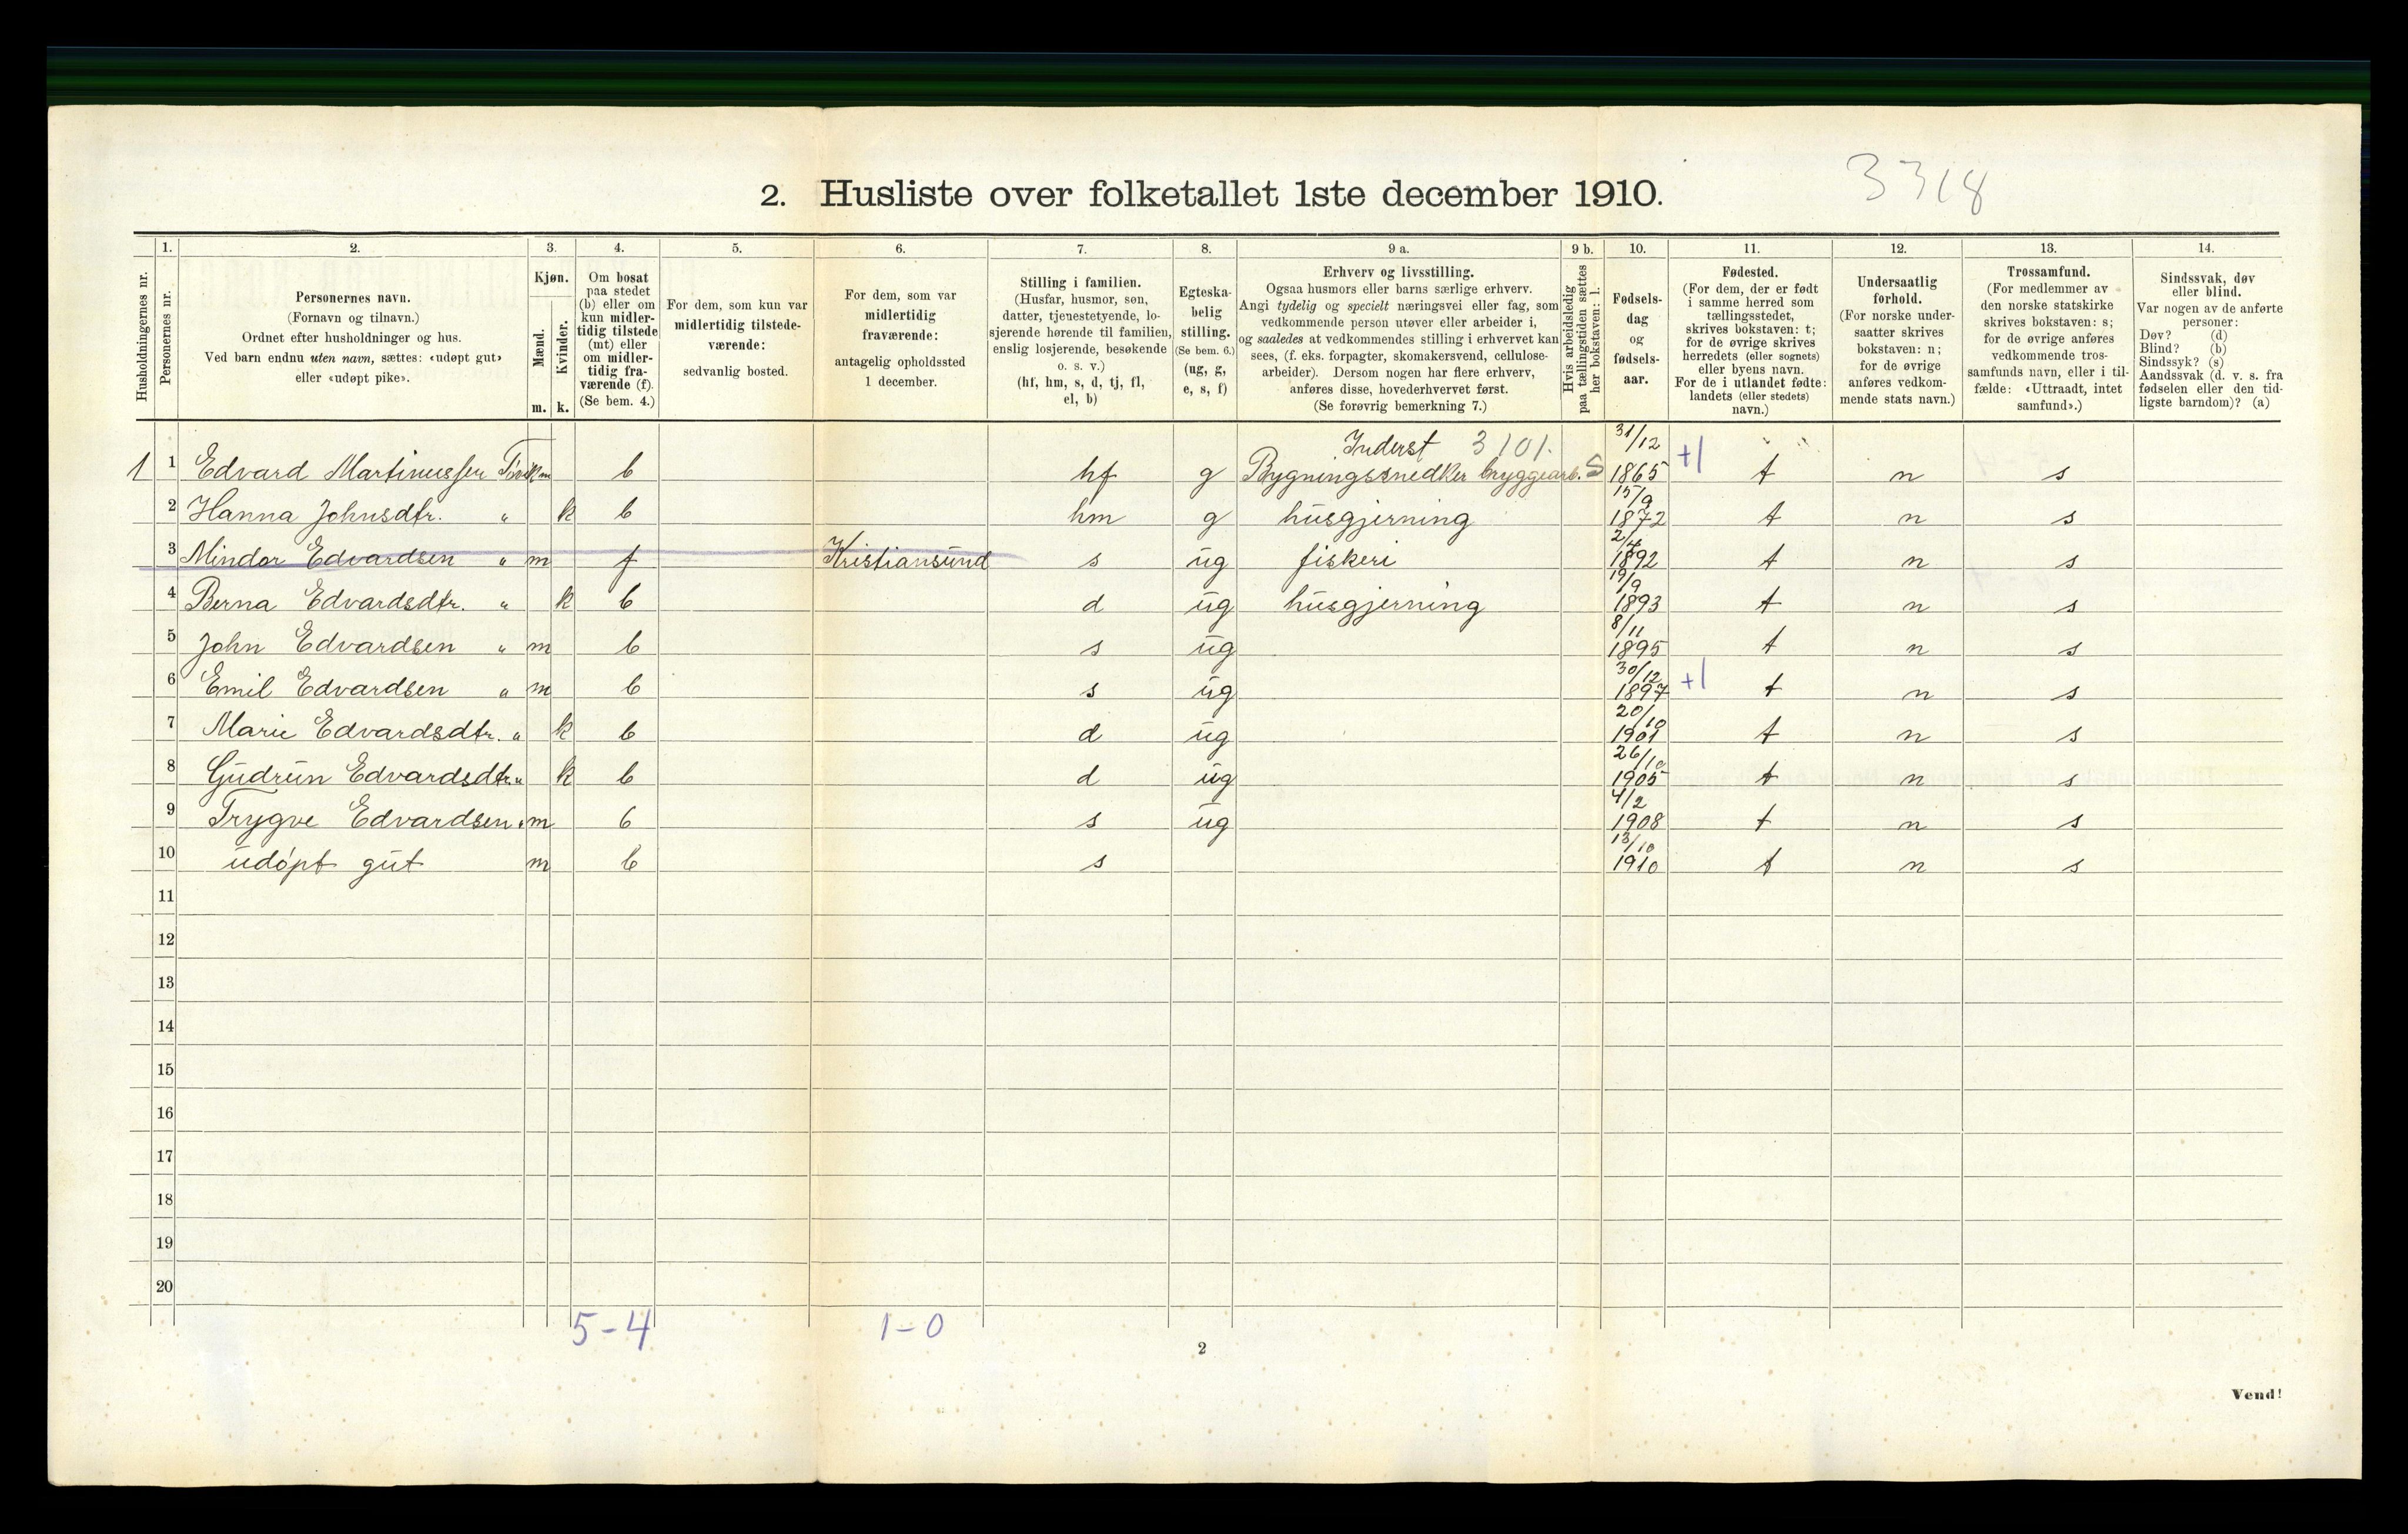 3318
2. Husliste over folketallet 1ste december 1910.
Husholdningernes nr.
1.
Personernes nr.
2.
Personernes navn.
(Fornavn og tilnavn.)
Ordnet efter husholdninger og hus.
Ved barn endnu uten navn, sættes: «udøpt gut»
eller «udøpt pike».
3.
Kjøn.
Mænd.
Kvinder.
m. k.
4.
Om bosat
paa stedet
(b) eller om
kun midler-
tidig tilstede
(mt) eller
om midler-
tidig fra-
værende (f).
(Se bem. 4.)
5.
For dem, som kun var
midlertidig tilstede-
værende:
sedvanlig bosted.
6.
For dem, som var
midlertidig
fraværende:
antagelig opholdssted
1 december.
7.
Stilling i familien.
(Husfar, husmor, søn,
datter, tjenestetyende, lo-
sjerende hørende til familien,
enslig losjerende, besøkende
o. s. v.)
(hf, hm, s, d, tj, fl,
el, b)
8.
Egteska-
belig
stilling.
(Se bem. 6.)
(ug, g,
e, s, f)
9 a.
Erhverv og livsstilling.
Ogsaa husmors eller barns særlige erhverv.
Angi tydelig og specielt næringsvei eller fag, som
vedkommende person utøver eller arbeider i,
og saaledes at vedkommendes stilling i erhvervet kan
sees, (f. eks. forpagter, skomakersvend, cellulose-
arbeider). Dersom nogen har flere erhverv,
anføres disse, hovederhvervet først.
(Se forøvrig bemerkning 7.)
9 b.
Hvis arbeidsledig
paa tællingstiden sættes
her bokstaven: l.
10.
Fødsels-
dag
og
fødsels-
aar.
11.
Fødested.
(For dem, der er født
i samme herred som
tællingsstedet,
skrives bokstaven: t;
for de øvrige skrives
herredets (eller sognets)
eller byens navn.
For de i utlandet fødte:
landets (eller stedets)
navn.)
12.
Undersaatlig
forhold.
(For norske under-
saatter skrives
bokstaven: n;
for de øvrige
anføres vedkom-
mende stats navn.)
13.
Trossamfund.
(For medlemmer av
den norske statskirke
skrives bokstaven: s;
for de øvrige anføres
vedkommende tros-
samfunds navn, eller i til-
fælde: «Uttraadt, intet
samfund».)
14.
Sindssvak, døv
eller blind.
Var nogen av de anførte
personer:
Døv? (d)
Blind? (b)
Sindssyk? (s)
Aandssvak (d. v. s. fra
fødselen eller den tid-
ligste barndom)? (a)
Inderst 3101. 31/12
1 1 Edvard Martinussen m b hf g Bygningssnedker bryggearb. S 1865 +1 t n s
15/9
2 Hanna Johnsdtr. " k b hm g husgjerning 1872 t n s
2/4
3 Mindor Edvardsen " m f Kristiansund s ug fiskeri 1892 t n s
19/9
4 Berna Edvardsdtr. " k b d ug husgjerning 1893 t n s
8/11
5 John Edvardsen " m b s ug 1895 t n s
30/12
6 Emil Edvardsen " m b s ug 1897 +1 t n s
20/10
7 Marie Edvardsdtr. " k b d ug 1901 t n s
26/10
8 Gudrun Edvardsdtr. " k b d ug 1905 t n s
4/2
9 Trygve Edvardsen " m b s ug 1908 t n s
13/10
10 udøpt gut m b s 1910 t n s
11
12
13
14
15
16
17
18
19
20
5-4 1-0
2
Vend!